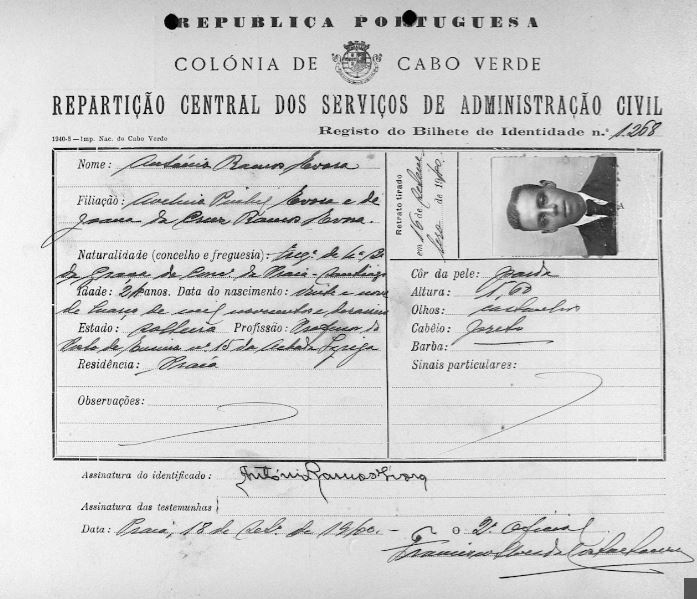 REPUBLICA PORTUGUESA
COLÓNIA DE CABO VERDE
REPARTIÇÃO CENTRAL DOS SERVIÇOS DE ADMINISTRAÇÃO CIVIL
1940-8—Imp. Nac. de Cabo Verde
Registo do Bilhete de Identidade n.º 1.268
Nome: António Ramos Evora
Filiação: Avelino Evora e de
Joana da Cruz Ramos Evora.
Naturalidade (concelho e freguesia): Freg.ª de N.ª S.ª
da Graça do Conc.º da Praia
Idade: anos. Data do nascimento: vinte e nove
de Março de mil novecentos e
Estado: solteiro Profissão: Professor do
Posto de Ensino nº 15 da Achada
Residência: Praia
Observações:
Retrato tirado
em 16 de
de 1940.
Côr da pele: parda
Altura: 1,60
Olhos: castanhos
Cabêlo: preto
Barba:
Sinais particulares:
Assinatura do identificado: António Ramos Evora
Assinatura das testemunhas
Data: Praia, 18 de de 1940.- O 2º Oficial
Francisco